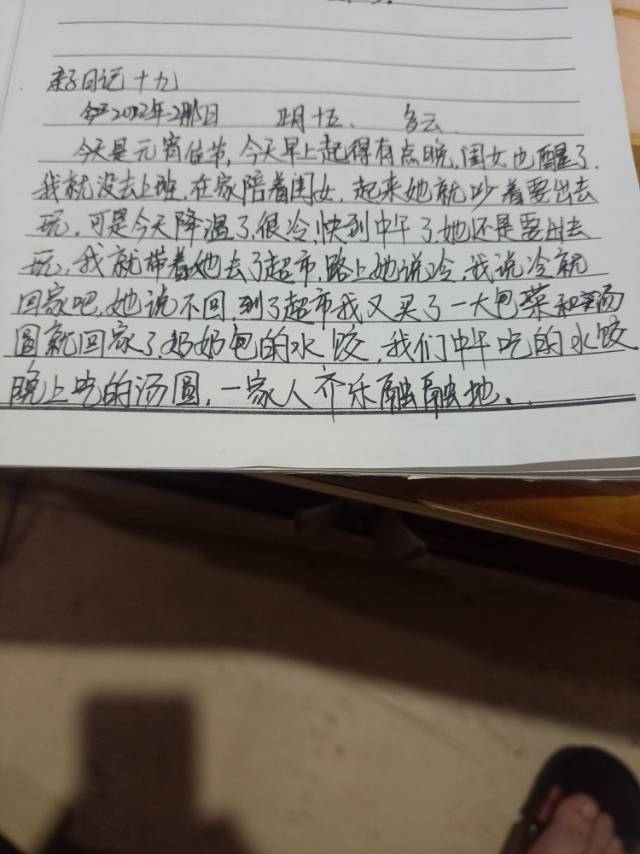 亲子日记十九
2022年2月15日 正月十五 多云
今天是元宵佳节,今天早上起得有点晚,闺女也醒了.
我就没去上班,在家陪着闺女,起来她就吵着要出去
玩,可是今天降温了,很冷,快到中午了,她还是要出去
玩,我就带着她去了超市,路上她说冷,我说冷就
回家吧,她说不回,到了超市我又买了一大包菜和汤
圆就回家了,奶奶包的水饺,我们中午吃的水饺
晚上吃的汤圆,一家人齐乐融融地.